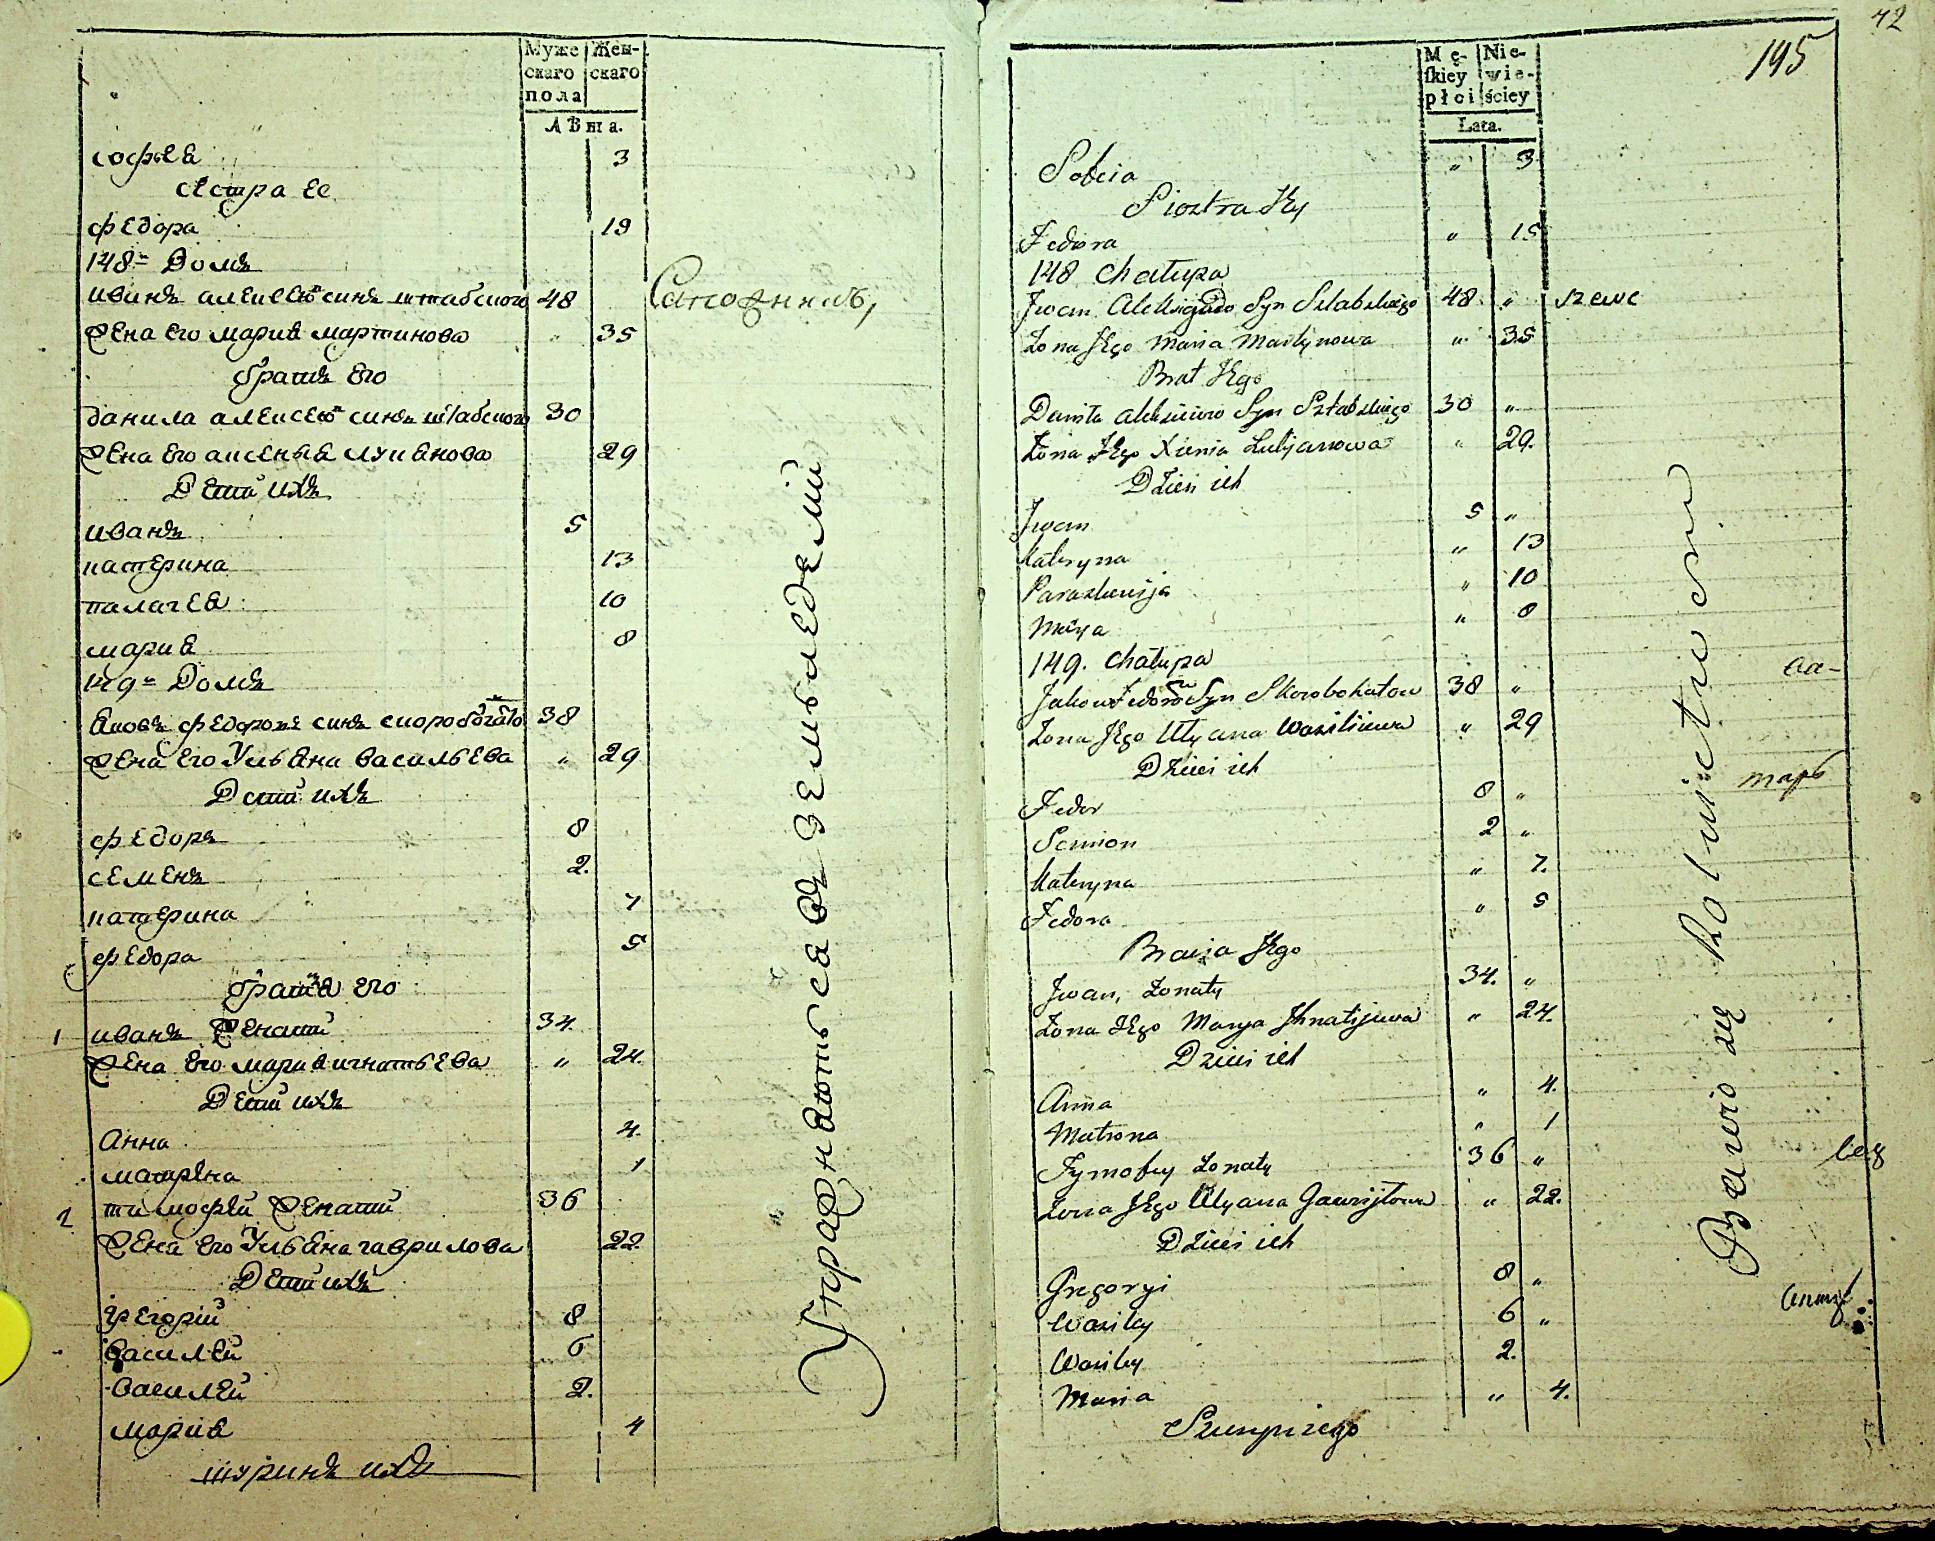 Муже Жен-
скаго скаго
пола
Лѣта.
софѣя 3
сестра ее
федора 19
148й Домъ
иванъ алексѣевъ синъ штабского 48 Сапожникъ,
жена его мария мартинова „ 35
братъ его
данила алексѣевъ синъ штабского 30
жена его аксенья лукянова 29
Дети ихъ
иванъ 5
катерина 13
палагея 10
мария 8
149й Домъ
яковъ федоровъ синъ скоробогато 38
жена его Ульяна васильева „ 29
Дети ихъ
федоръ 8
семенъ 2.
катерина 7
федора 5
братья его
1 иванъ женатий 34
жена его мария игнатьева „ 24.
Дети ихъ
анна 4.
матрена 1
2 тимофей женатий 36
жена его Ульяна гаврилова 22.
Дети ихъ
григорий 8
василей 6
василей 2.
мария 4
шуринъ ихъ
Упражняютьса въ земледелий
42
195
Mę- Nie-
ſkiey wie-
płci ściey
Lata.
Sofeia „ 3.
Siostra Jey
Fedora „ 15
148 Chałupa
Jwan Alekseiewo Syn Sztabskiego 48 „ szewc
Żona Jego Maria Martynowa „ 35
Brat Jego
Daniła Alekseiewo Syn Sztabskiego 30 „
Żona Jego Xienia Lukjanowa „ 29.
Dzieci ich
Jwan 5 „
Kateryna „ 13
Paraskewija „ 10
Marya „ 8
149. Chałupa
Jakow Fedorow Syn Skorobohatow 38 „
Żona Jego Ulyana Wasiliiewa „ 29
Dzieci ich
Fedor 8 „
Semion 2 „
Kateryna „ 7.
Fedora „ 5
Bracia Jego
Jwan, Żonaty 34. „
Żona Jego Marya Jhnatijewa „ 24.
Dzieci ich
Anna „ 4.
Matrona „ 1
Tymofey Żonaty 36 „
Żona Jego Ulyana Gawryłowa „ 22.
Dzieci ich
Gregoryi 8 „
Wasiley 6 „
Wasiley 2.
Maria „ 4.
Szuryn ich
Bawią się Rolnictwem